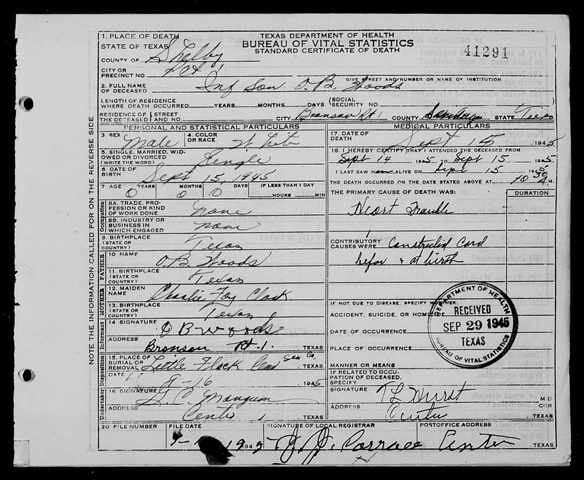 1. PLACE OF DEATH
TEXAS DEPARTMENT OF HEALTH
BUREAU OF VITAL STATISTICS
STANDARD CERTIFICATE OF DEATH
41291
STATE OF TEXAS
COUNTY OF Shelby
CITY OR
PRECINCT NO.
GIVE STREET AND NUMBER OR NAME OF INSTITUTION
2. FULL NAME
OF DECEASED Inf Son O.B. Woods
LENGTH OF RESIDENCE
WHERE DEATH OCCURRED YEARS MONTHS DAYS
SOCIAL
SECURITY NO.
RESIDENCE OF
THE DECEASED STREET AND NO. CITY Bronson Rt 1 COUNTY STATE Texas
PERSONAL AND STATISTICAL PARTICULARS
MEDICAL PARTICULARS
3. SEX Male
4. COLOR OR RACE White
5. SINGLE, MARRIED, WIDOWED OR DIVORCED (WRITE THE WORD) Single
6. DATE OF BIRTH Sept 15, 1945
7. AGE YEARS 0 MONTHS 0 DAYS 0 IF LESS THAN 1 DAY HOURS MIN
8A. TRADE, PROFESSION OR KIND OF WORK DONE None
8B. INDUSTRY OR BUSINESS IN WHICH ENGAGED None
9. BIRTHPLACE (STATE OR COUNTRY) Texas
10. NAME O.B. Woods
11. BIRTHPLACE (STATE OR COUNTRY) Texas
12. MAIDEN NAME Charlie Fay Clark
13. BIRTHPLACE (STATE OR COUNTRY) Texas
14. SIGNATURE O B Woods
ADDRESS Bronson Rt-1. TEXAS
15. PLACE OF BURIAL OR REMOVAL Little Flock TEXAS
DATE 9-16
16. SIGNATURE Mangum
ADDRESS Center TEXAS
17. DATE OF DEATH Sept 15 1945
18. I HEREBY CERTIFY THAT I ATTENDED THE DECEASED FROM
Sept 14 1945 TO Sept 15 1945
I LAST SAW ALIVE ON Sept 15
THE DEATH OCCURRED ON THE DATE STATED ABOVE AT
THE PRIMARY CAUSE OF DEATH WAS: DURATION
Heart Trouble
CONTRIBUTORY CAUSES WERE: Constricted Cord
before & at birth
IF NOT DUE TO DISEASE, SPECIFY WHETHER:
ACCIDENT, SUICIDE, OR HOMICIDE
DATE OF OCCURRENCE
PLACE OF OCCURRENCE
MANNER OR MEANS
IF RELATED TO OCCUPATION OF DECEASED, SPECIFY
SIGNATURE T L Hurst M.D.
ADDRESS Center TEXAS
DEPARTMENT OF HEALTH
RECEIVED
SEP 29 1945
TEXAS
BUREAU OF VITAL STATISTICS
20. FILE NUMBER
FILE DATE
SIGNATURE OF LOCAL REGISTRAR
POSTOFFICE ADDRESS
Center TEXAS
NOTE THE INFORMATION CALLED FOR ON THE REVERSE SIDE